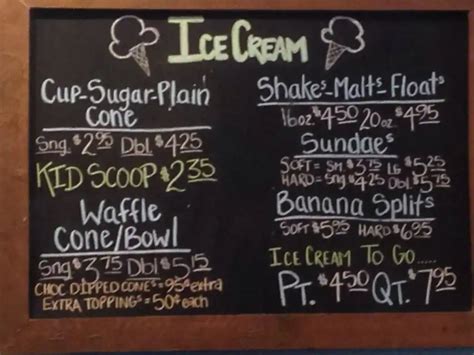 ICE CREAM
Cup-Sugar-Plain
Cone
Sng. $2.95 Dbl $4.25
KID SCOOP $2.35
Waffle
Cone/Bowl
Sng $3.75 Dbl $5.15
CHOC DIPPED CONES = 95¢ extra
EXTRA TOPPINGS = 50¢ each
Shakes-Malts-Floats
16oz. $4.50 20oz. $4.95
Sundaes
SOFT = SM. $3.75 LG $5.25
HARD = Sng. $4.25 Dbl. $5.75
Banana Splits
SOFT $5.95 HARD $6.95
ICE CREAM TO GO.....
PT. $4.50 QT. $7.95